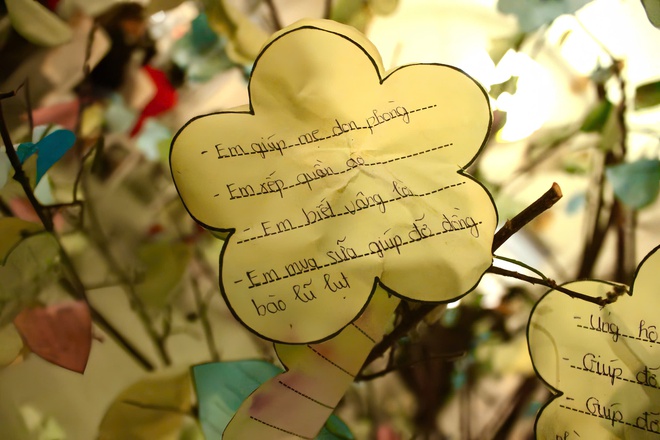 - Em giúp mẹ dọn phòng
- Em xếp quần áo
- Em biết vâng lời
- Em mua sữa giúp đỡ đồng
bào lũ lụt
- Ủng hộ
- Giúp đỡ
- Giúp đỡ